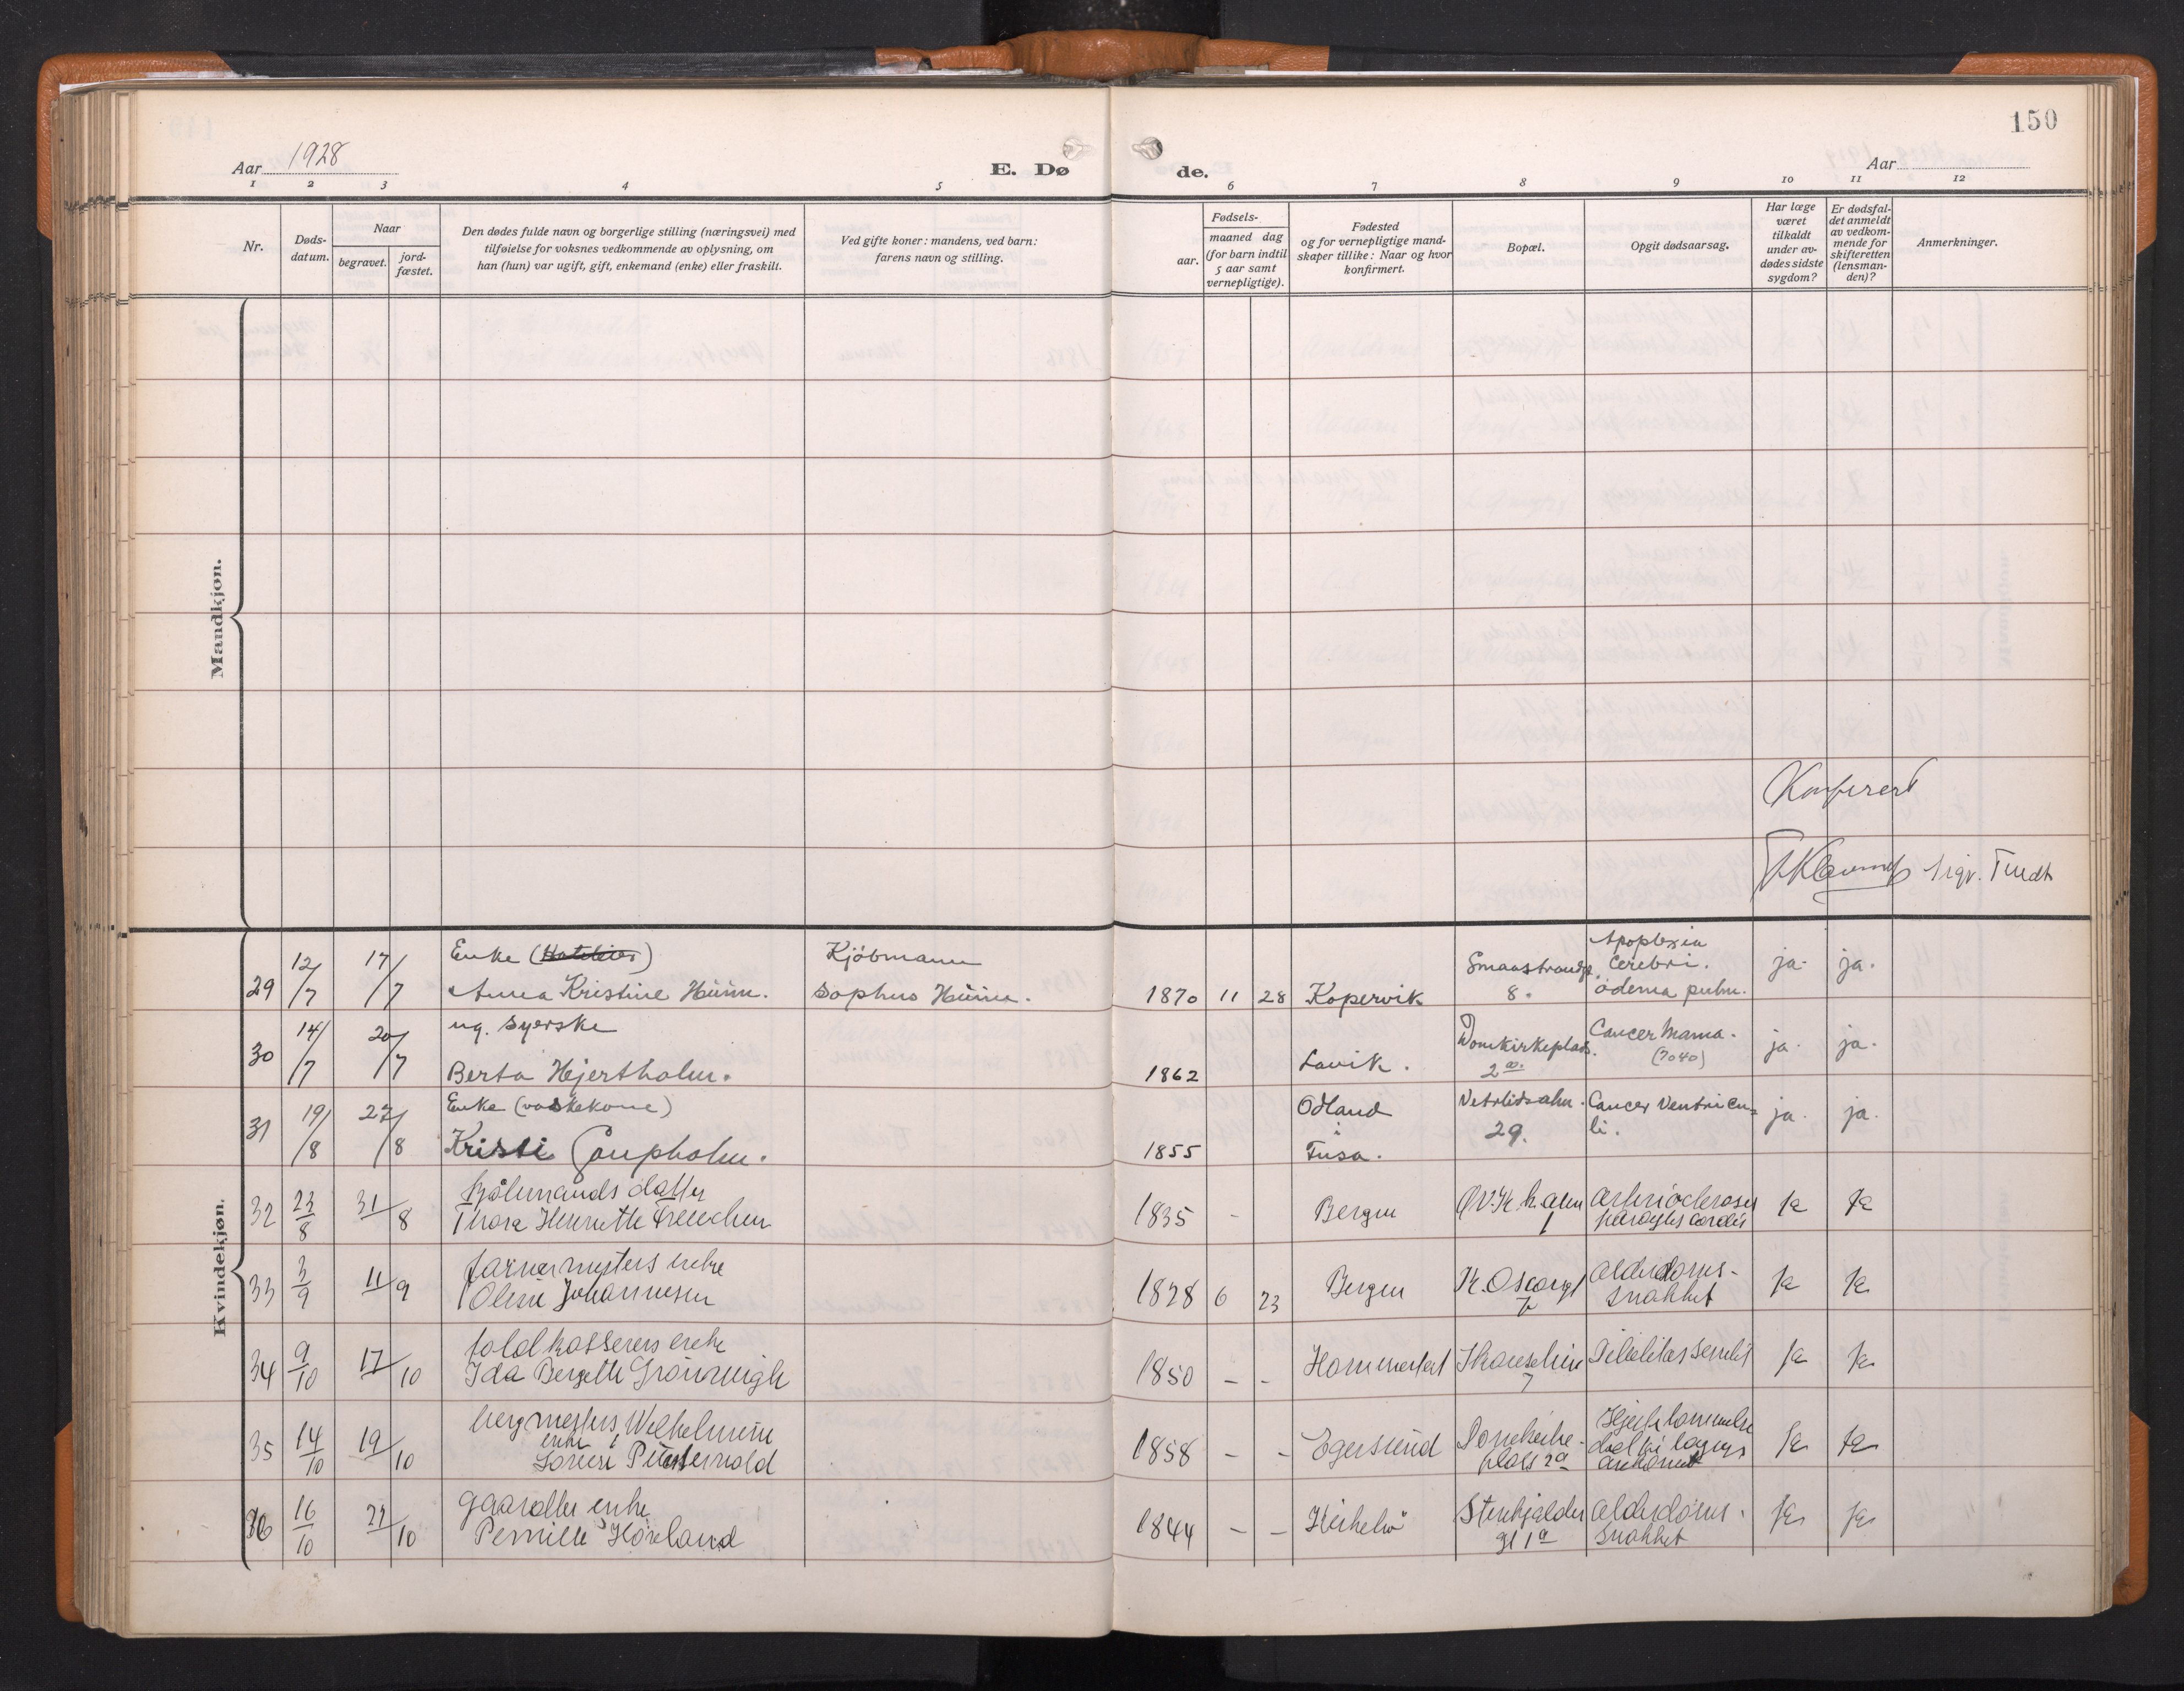 150
Aar 1928
E. Dø
de.
Aar
1 2 3 4 5 6 7 8 9 10 11 12
Nr.
Døds-
datum.
Naar
begravet.
jord-
fæstet.
Den dødes fulde navn og borgerlige stilling (næringsvei) med
tilføielse for voksnes vedkommende av oplysning, om
han (hun) var ugift, gift, enkemand (enke) eller fraskilt.
Ved gifte koner: mandens, ved barn:
farens navn og stilling.
Fødsels-
aar.
maaned dag
(for barn indtil
5 aar samt
vernepligtige).
Fødested
og for vernepligtige mand-
skaper tillike: Naar og hvor
konfirmert.
Bopæl.
Opgit dødsaarsag.
Har læge
været
tilkaldt
under av-
dødes sidste
sygdom?
Er dødsfal-
det anmeldt
av vedkom-
mende for
skifteretten
(lensman-
den)?
Anmerkninger.
Mandkjøn.
Konferert
Sigv. Tindt
Kvindekjøn.
29 12/7 17/7 Enke
Anna Kristine Hüim.
Kjöbmann
Sophus Hüim.
1870 11 28 Kopervik
Smaastrandg.
8.
Apoplexia
cerebri.
ödema pulm.
ja. ja.
30 14/7 20/7 ug. syerske
Berta Hjertholm.
1862 Lavik.
Domkirkeplads.
2a.
Cancer Mama.
ja. ja.
31 19/8 27/8 Enke (vaskekone)
Kristi
1855 Odland
i
Fusa.
Vetrlidsalm.
29.
Cancer Ventricu-
li.
ja. ja.
32 23/8 31/8 datter
Thora Henriette
1835 - Bergen
1
Arteriosclerosis
cordis
Ja Ja
33 3/9 11/9 farvermesters enke
Oline Johannesen
1828 6 23 Bergen
K. Oscarsgt
7
Alderdoms-
svakhet
Ja Ja
34 9/10 17/10 toldkasserers enke
Ida Bergette
1850 - - Hammerfest
7
Debilitas senilis
Ja Ja
35 14/10 19/10 bergmesters Wilhelmine
enke
1858 - - Egersund
Domkirke-
plads 2a
Ja Ja
36 16/10 22/10 enke
Pernille Hövland
1844 - -
Stenkjelder
gt 1a
Alderdoms-
svakhet
Ja Ja